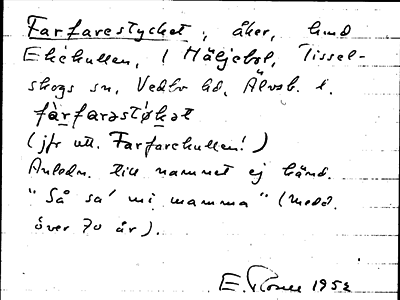 Farfarestycket, åker, hmd
Ekekullen, i Häljebol, Tissel-
skogs sn, Vedbo hd, Älvsb. l.
fàrfarəstỳkət
(jfr utt. Farfarekullen!)
Anledn. till namnet ej känd.
"Så sa' mi mamma" (medd.
över 70 år).
E. 1952